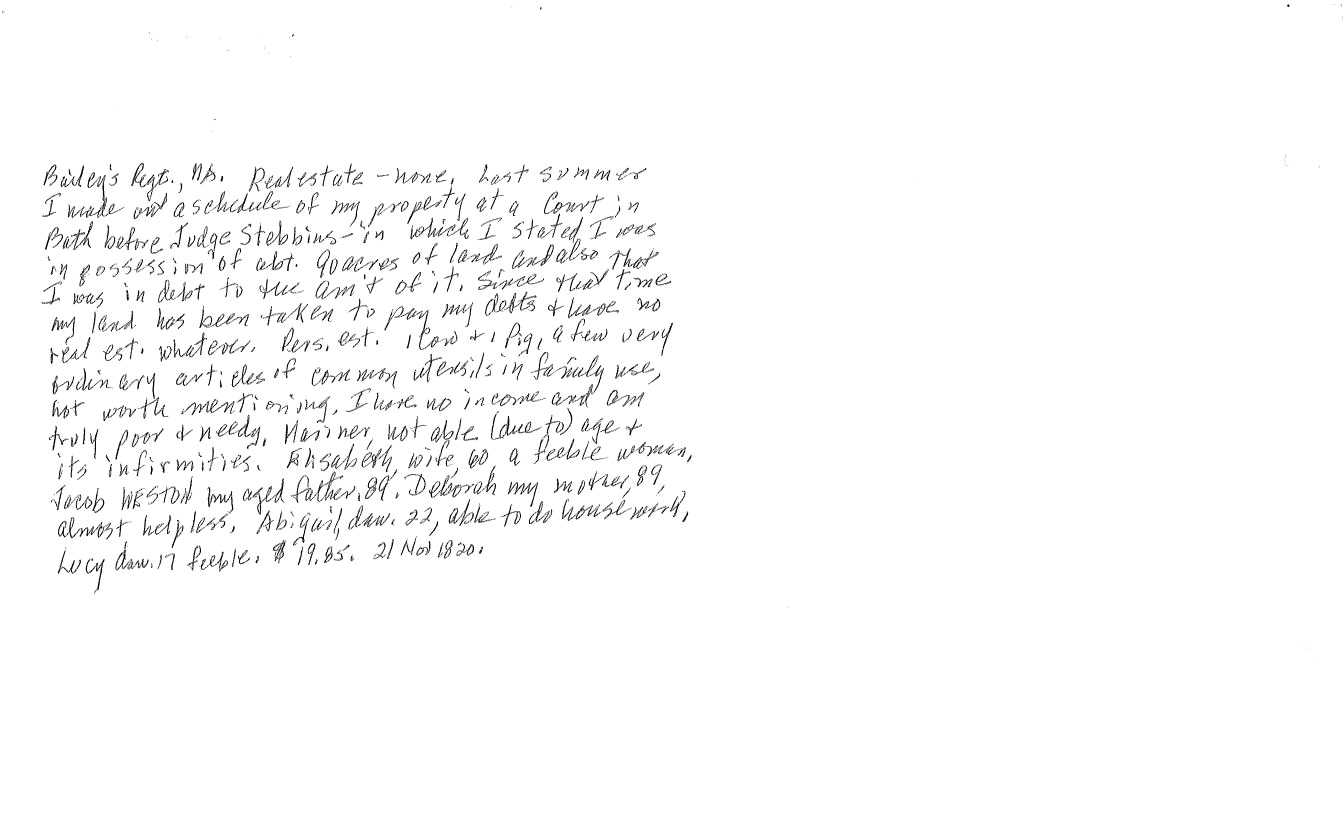 Bailey's Regt., Ms. Real estate - none, Last summer
I made out a schedule of my property at a Court in
Bath before Judge Stebbins - in which I stated I was
in possession of abt. 90 acres of land and also that
I was in debt to the am't of it. Since that time
my land has been taken to pay my debts & have no
real est. whatever. Pers. est. 1 Cow & 1 Pig, a few very
ordinary articles of common utensils in family use,
not worth mentioning. I have no income and am
truly poor & needy. Mariner, not able (due to) age &
its infirmities. Elisabeth, wife, 60, a feeble woman,
Jacob WESTON my aged father, 89. Deborah my mother, 89,
almost helpless. Abigail, daw. 22, able to do house work,
Lucy daw. 17 feeble. $79.85. 21 Nov 1820.